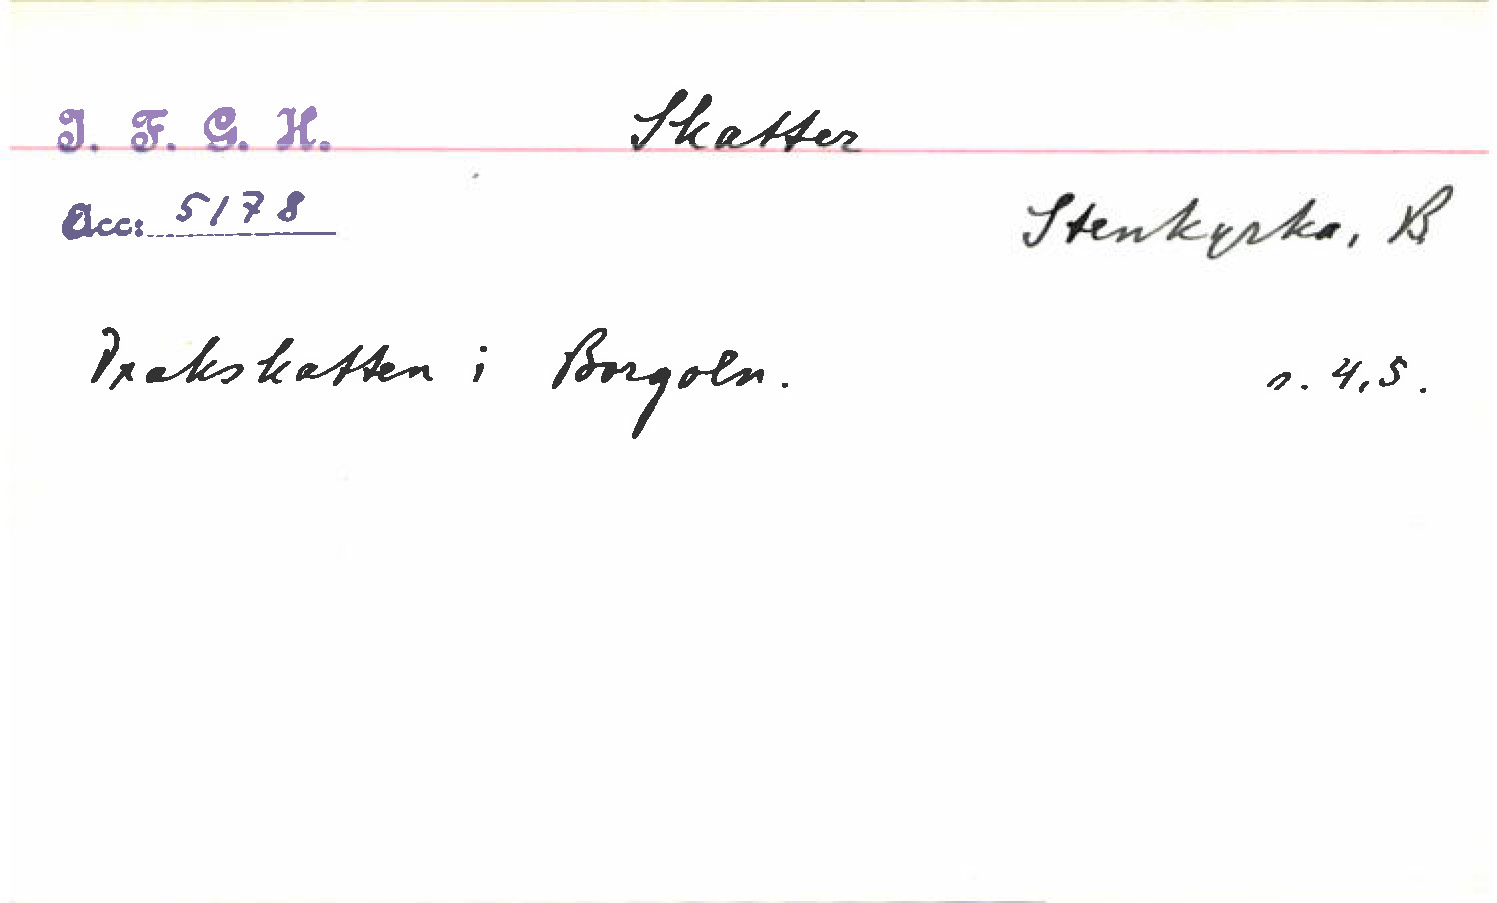 I. F. G. H.
Skatter
Acc: 5178
Stenkyrka, B
Drakskatten i Borgoln.
s. 4,5.